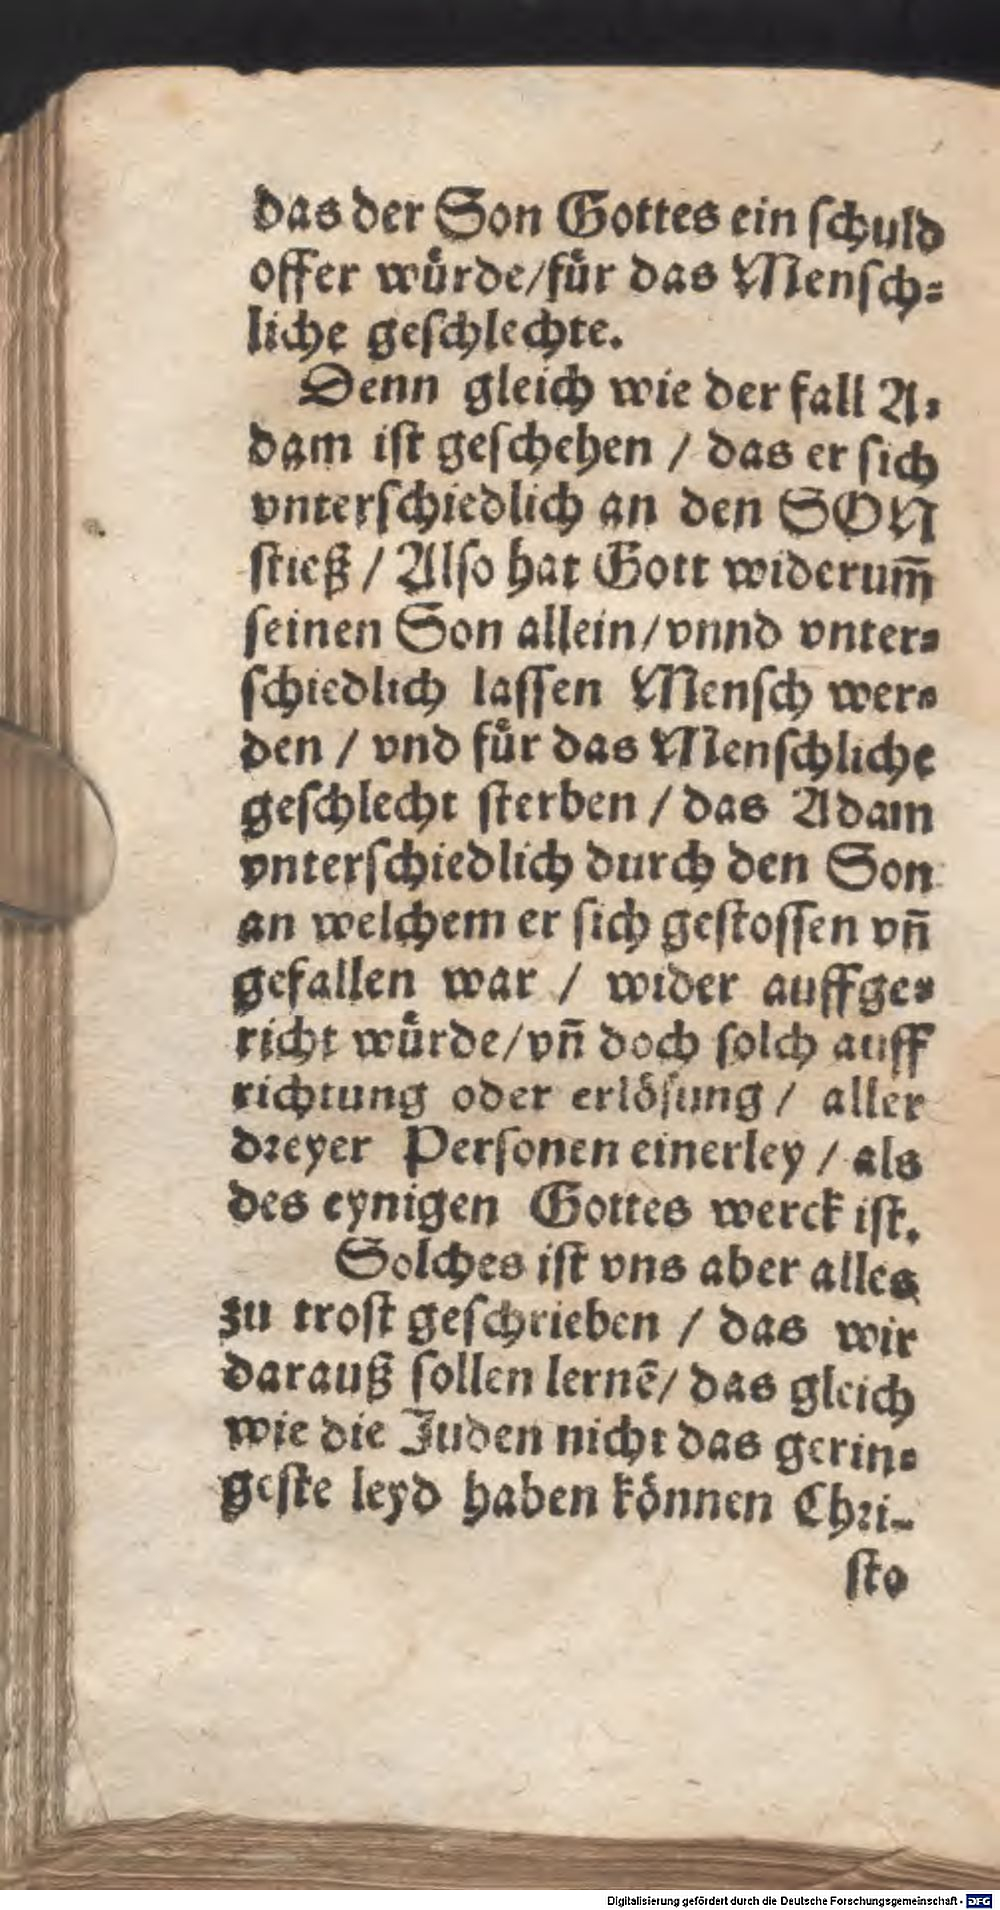 das der Son Gottes ein ſchuld
offer wuͤrde/fuͤr das Menſch⸗
liche geſchlechte.
Denn gleich wie der fall A⸗
dam iſt geſchehen / das er ſich
vnterſchiedlich an den SON
ſtieß / Alſo hat Gott widerum̃
ſeinen Son allein/vnnd vnter⸗
ſchiedlich laſſen Menſch wer⸗
den / vnd fuͤr das Menſchliche
geſchlecht ſterben / das Adam
vnterſchiedlich durch den Son
an welchem er ſich geſtoſſen vñ
gefallen war / wider auffge⸗
richt wuͤrde/vñ doch ſolch auff
richtung oder erloͤſung / aller
dꝛeyer Perſonen einerley / als
des eynigen Gottes werck iſt.
Solches iſt vns aber alles
zu troſt geſchrieben / das wir
darauß ſollen lernē/ das gleich
wie die Juden nicht das gerin⸗
geſte leyd haben koͤnnen Chꝛi⸗
ſto
Digitalisierung gefördert durch die Deutsche Forschungsgemeinschaft - DFG